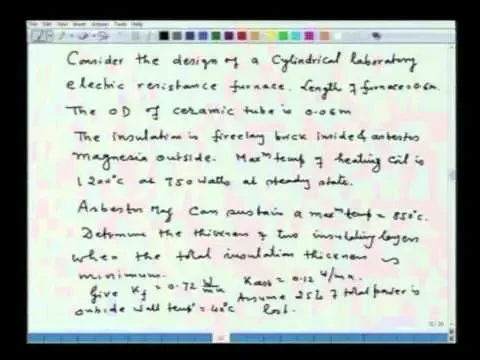 Consider the design of a cylindrical laboratory
electric resistance furnace. Length of furnace = 0.6m.
The OD of ceramic tube is 0.06m
The insulation is fireclay brick inside & asbestos
magnesia outside. Max^m temp of heating coil is
1200°c at 750 Watts at steady state.
Asbestos Mag can sustain a max^m temp = 850°c.
Determine the thickness of two insulating layers
when the total insulation thickness is
minimum.
Give K_f = 0.72 W/mK K_asb = 0.12 W/mK.
Assume 25% of total power is
outside wall temp = 40°c lost.